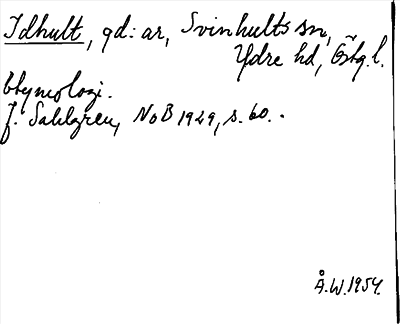 Idhult, gd:ar, Svinhults sn,
Ydre hd, Östg.l.
Etymologi.
J. Sahlgren, NoB 1929, s. 60.
Å.W.1954.